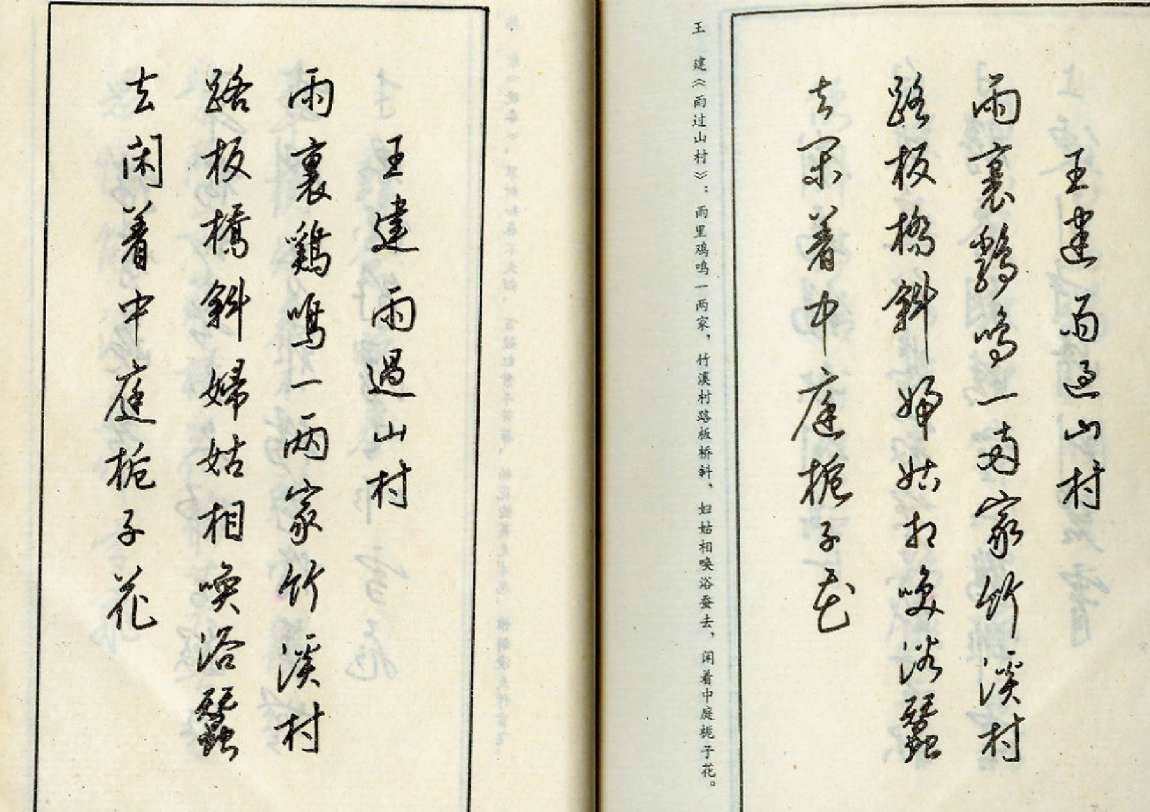 王建雨過山村
雨裏鷄鳴一兩家竹溪村
路板橋斜婦姑相喚浴蠶
去閑着中庭栀子花
王　建《雨过山村》：雨里鸡鸣一两家，竹溪村路板桥斜，妇姑相唤浴蚕去，闲着中庭栀子花。
王建雨過山村
雨裏鷄鳴一兩家竹溪村
路板橋斜婦姑相喚浴蠶
去闲着中庭栀子花